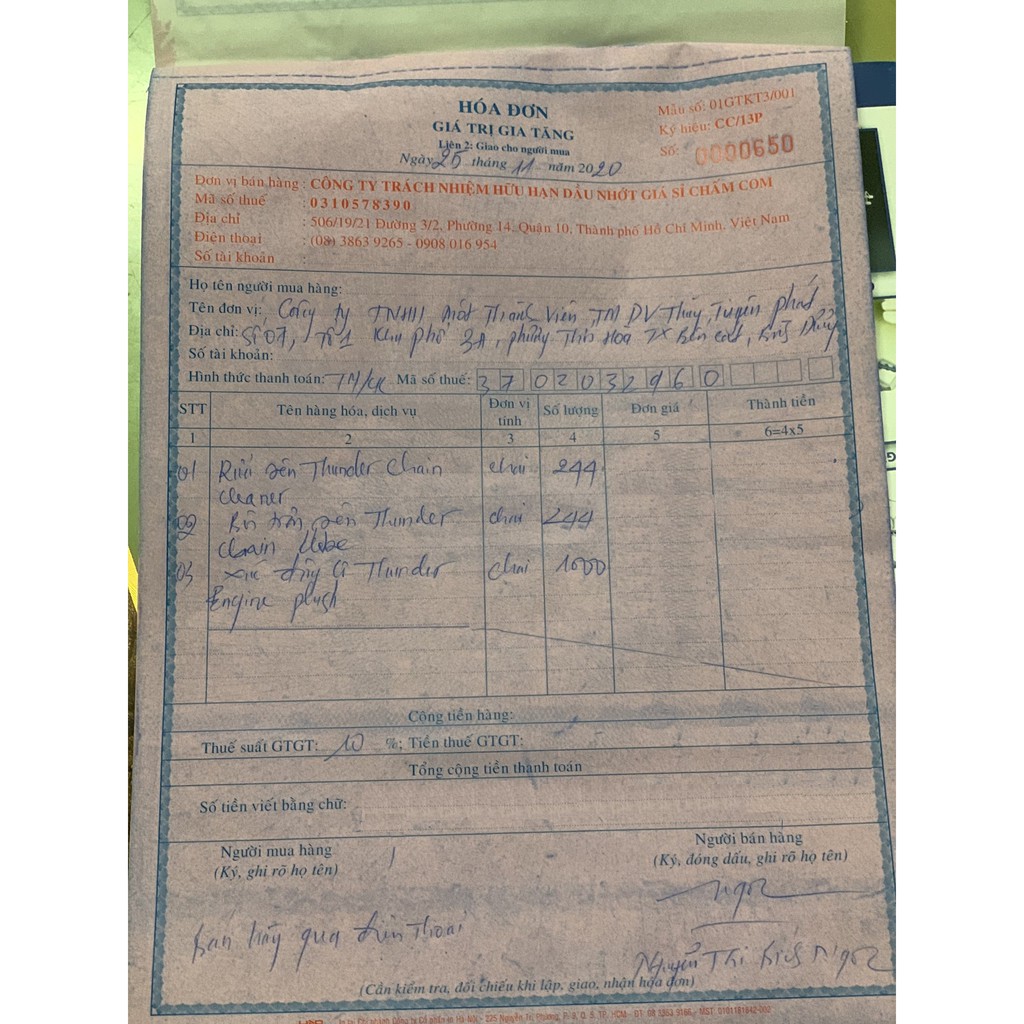 HÓA ĐƠN
GIÁ TRỊ GIA TĂNG
Liên 2: Giao cho người mua
Ngày 25 tháng 11 năm 2020
Mẫu số: 01GTKT3/001
Ký hiệu: CC/13P
Số: 0000650
Đơn vị bán hàng : CÔNG TY TRÁCH NHIỆM HỮU HẠN DẦU NHỚT GIÁ SỈ CHẤM COM
Mã số thuế : 0310578390
Địa chỉ : 506/19/21 Đường 3/2, Phường 14, Quận 10, Thành phố Hồ Chí Minh, Việt Nam
Điện thoại : (08) 3863 9265 - 0908 016 954
Số tài khoản :
Họ tên người mua hàng:
Tên đơn vị: Công ty TNHH Một Thành Viên TM DV Thủy Tuyên Phát
Địa chỉ: Số 07, Tổ 1 Khu phố 3A, phường Thới Hoà TX Bến Cát, Bình Dương
Số tài khoản:
Hình thức thanh toán: TM/CK Mã số thuế: 3702032960
STT Tên hàng hóa, dịch vụ Đơn vị tính Số lượng Đơn giá Thành tiền
1 2 3 4 5 6=4x5
01 Rửa sên Thunder Chain chai 244
cleaner
02 Bôi trơn sên Thunder chai 244
Chain Lube
03 Thunder chai 1000
Engine
Cộng tiền hàng:
Thuế suất GTGT: 10 %; Tiền thuế GTGT:
Tổng cộng tiền thanh toán
Số tiền viết bằng chữ:
Người mua hàng Người bán hàng
(Ký, ghi rõ họ tên) (Ký, đóng dấu, ghi rõ họ tên)
Ngọc
bán hàng qua điện thoại
Nguyễn Thị Bích Ngọc
(Cần kiểm tra, đối chiếu khi lập, giao, nhận hóa đơn)